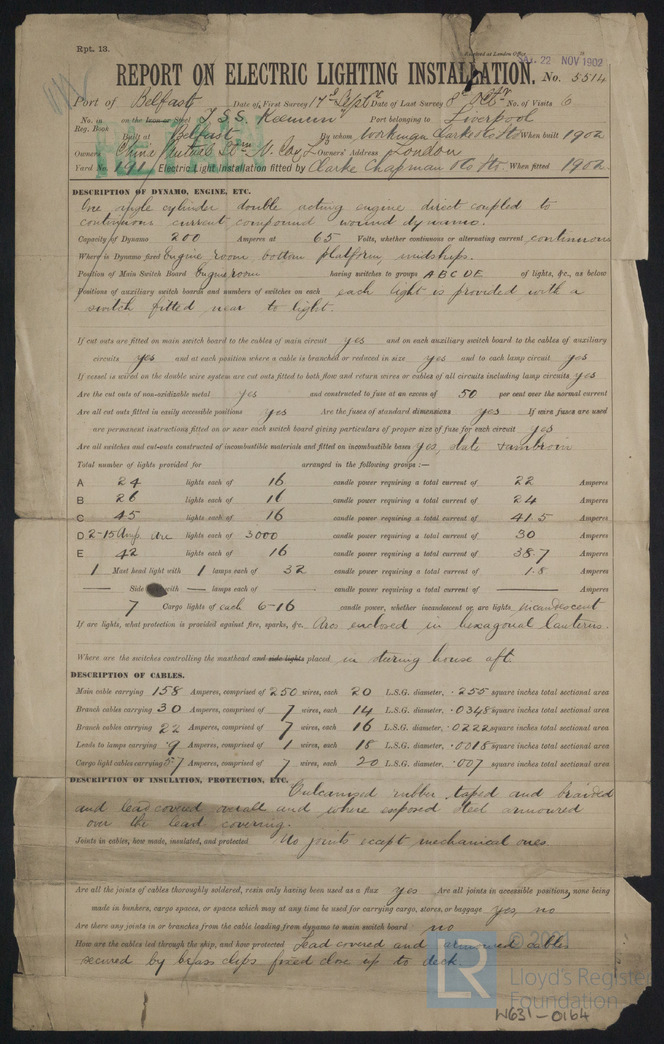 Rpt. 13.
Received at London Office
SAT. 22 NOV 1902
REPORT ON ELECTRIC LIGHTING INSTALLATION. No. 5514
Port of Belfast Date of First Survey 17th Sept Date of Last Survey 8th No. of Visits 6
No. in Reg. Book on the Iron or Steel T.S.S. Keemun Port belonging to Liverpool
Built at Belfast By whom Workman Clarke & Co Ltd When built 1902
Owners China Mutual S. N. Coy Ld Owners' Address London
Yard No. 191 Electric Light Installation fitted by Clarke Chapman & Co Ltd. When fitted 1902.
DESCRIPTION OF DYNAMO, ENGINE, ETC.
One single cylinder double acting engine direct coupled to
continuous current compound wound dynamo.
Capacity of Dynamo 200 Amperes at 65 Volts, whether continuous or alternating current continuous
Where is Dynamo fixed Engine room bottom platform, midships.
Position of Main Switch Board Engine room having switches to groups A B C D E of lights, &c., as below
Positions of auxiliary switch boards and numbers of switches on each each light is provided with a
switch fitted near to light.
If cut outs are fitted on main switch board to the cables of main circuit yes and on each auxiliary switch board to the cables of auxiliary
circuits yes and at each position where a cable is branched or reduced in size yes and to each lamp circuit yes
If vessel is wired on the double wire system are cut outs fitted to both flow and return wires or cables of all circuits including lamp circuits yes
Are the cut outs of non-oxidizable metal yes and constructed to fuse at an excess of 50 per cent over the normal current
Are all cut outs fitted in easily accessible positions yes Are the fuses of standard dimensions yes If wire fuses are used
are permanent instructions fitted on or near each switch board giving particulars of proper size of fuse for each circuit yes
Are all switches and cut-outs constructed of incombustible materials and fitted on incombustible bases yes, slate & ambroin
Total number of lights provided for arranged in the following groups :—
A 24 lights each of 16 candle power requiring a total current of 22 Amperes
B 26 lights each of 16 candle power requiring a total current of 24 Amperes
C 45 lights each of 16 candle power requiring a total current of 41.5 Amperes
D 2-15 Amp. Arc lights each of 3000 candle power requiring a total current of 30 Amperes
E 42 lights each of 16 candle power requiring a total current of 38.7 Amperes
1 Mast head light with 1 lamps each of 32 candle power requiring a total current of 1.8 Amperes
— Side with — lamps each of — candle power requiring a total current of — Amperes
7 Cargo lights of each 6-16 candle power, whether incandescent or arc lights incandescent
If arc lights, what protection is provided against fire, sparks, &c. Arcs enclosed in hexagonal lanterns.
Where are the switches controlling the masthead and side lights placed in steering house aft.
DESCRIPTION OF CABLES.
Main cable carrying 158 Amperes, comprised of 250 wires, each 20 L.S.G. diameter, .255 square inches total sectional area
Branch cables carrying 30 Amperes, comprised of 7 wires, each 14 L.S.G. diameter, .0348 square inches total sectional area
Branch cables carrying 22 Amperes, comprised of 7 wires, each 16 L.S.G. diameter, .0222 square inches total sectional area
Leads to lamps carrying .9 Amperes, comprised of 1 wires, each 18 L.S.G. diameter, .0018 square inches total sectional area
Cargo light cables carrying 5.7 Amperes, comprised of 7 wires, each 20 L.S.G. diameter, .007 square inches total sectional area
DESCRIPTION OF INSULATION, PROTECTION, ETC.
Vulcanized rubber taped and braided
and lead covered overall and where exposed steel armoured
over the lead covering.
Joints in cables, how made, insulated, and protected No joints except mechanical ones
Are all the joints of cables thoroughly soldered, resin only having been used as a flux yes Are all joints in accessible positions, none being
made in bunkers, cargo spaces, or spaces which may at any time be used for carrying cargo, stores, or baggage yes, no
Are there any joints in or branches from the cable leading from dynamo to main switch board no
How are the cables led through the ship, and how protected Lead covered and armoured cables
secured by brass clips fixed close up to deck
© 2021
LR
Lloyd's Register
Foundation
W631-0164